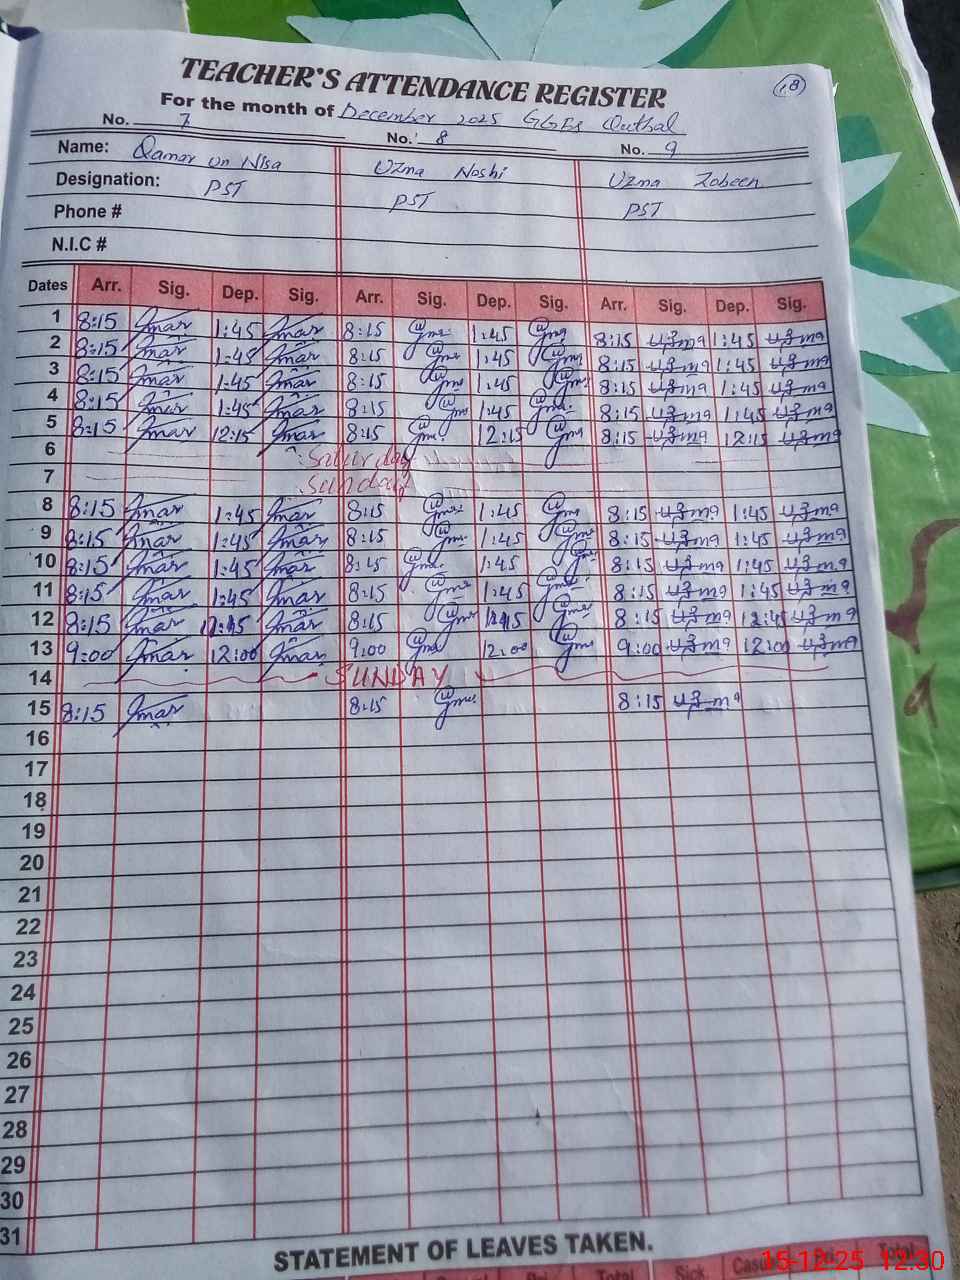 18
TEACHER'S ATTENDANCE REGISTER
For the month of December 2025 GGES Quthal
No. 7 No. 8 No. 9
Name: Qamar un Nisa Uzma Noshi Uzma Zobeen
Designation: PST PST PST
Phone #
N.I.C #
Dates Arr. Sig. Dep. Sig. Arr. Sig. Dep. Sig. Arr. Sig. Dep. Sig.
1 8:15 Qmar 1:45 Qmar 8:15 1:45 8:15 1:45
2 8:15 Qmar 1:45 Qmar 8:15 1:45 8:15 1:45
3 8:15 Qmar 1:45 Qmar 8:15 1:45 8:15 1:45
4 8:15 Qmar 1:45 Qmar 8:15 1:45 8:15 1:45
5 8:15 Qmar 12:15 Qmar 8:15 12:15 8:15 12:15
6 Saturday
7 Sunday
8 8:15 Qmar 1:45 Qmar 8:15 1:45 8:15 1:45
9 8:15 Qmar 1:45 Qmar 8:15 1:45 8:15 1:45
10 8:15 Qmar 1:45 Qmar 8:15 1:45 8:15 1:45
11 8:15 Qmar 1:45 Qmar 8:15 1:45 8:15 1:45
12 8:15 Qmar Qmar 8:15 8:15
13 9:00 Qmar 12:00 Qmar 9:00 12:00 9:00 12:00
14 SUNDAY
15 8:15 Qmar 8:15 8:15
16
17
18
19
20
21
22
23
24
25
26
27
28
29
30
31
STATEMENT OF LEAVES TAKEN.
Total Sick Total
15-12-25 12:30